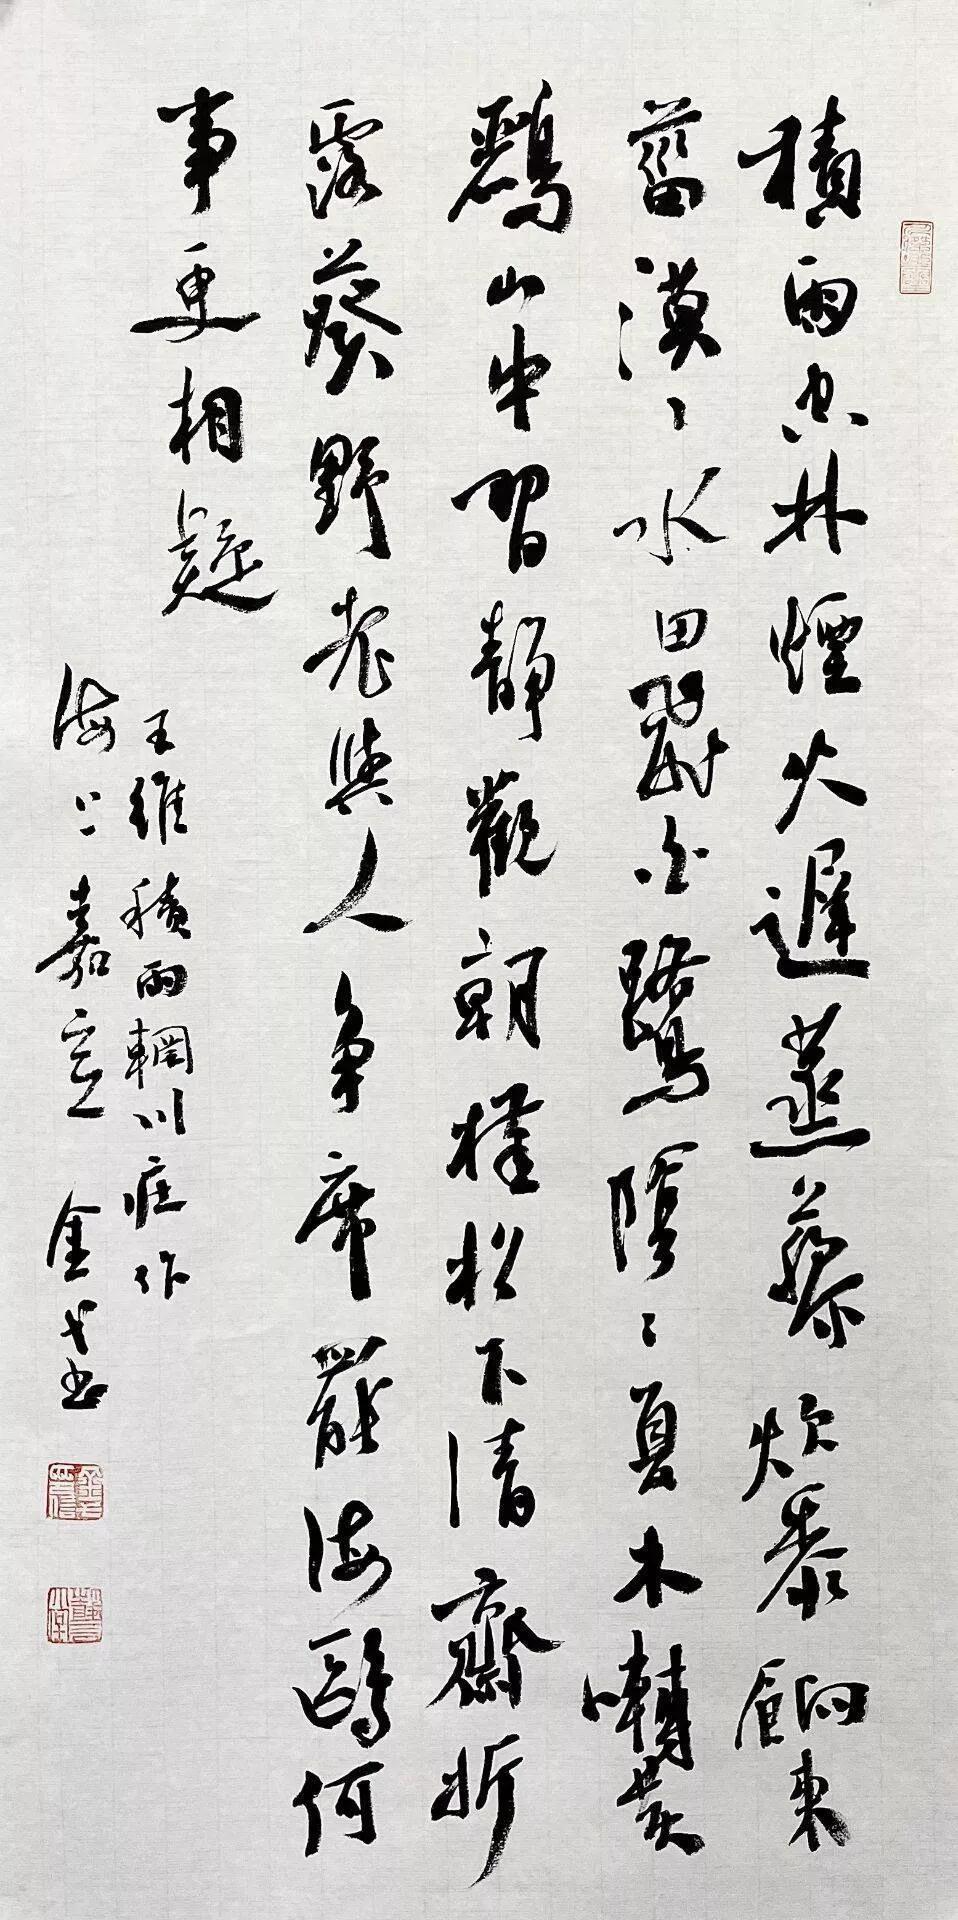 積雨空林煙火遲蒸藜炊黍餉東
菑漠々水田飛白鷺陰々夏木囀黄
鸝山中習靜觀朝槿松下清齋折
露葵野老與人争席罷海鷗何
事更相疑
王維積雨輞川庄作
海上嘉定金戈书